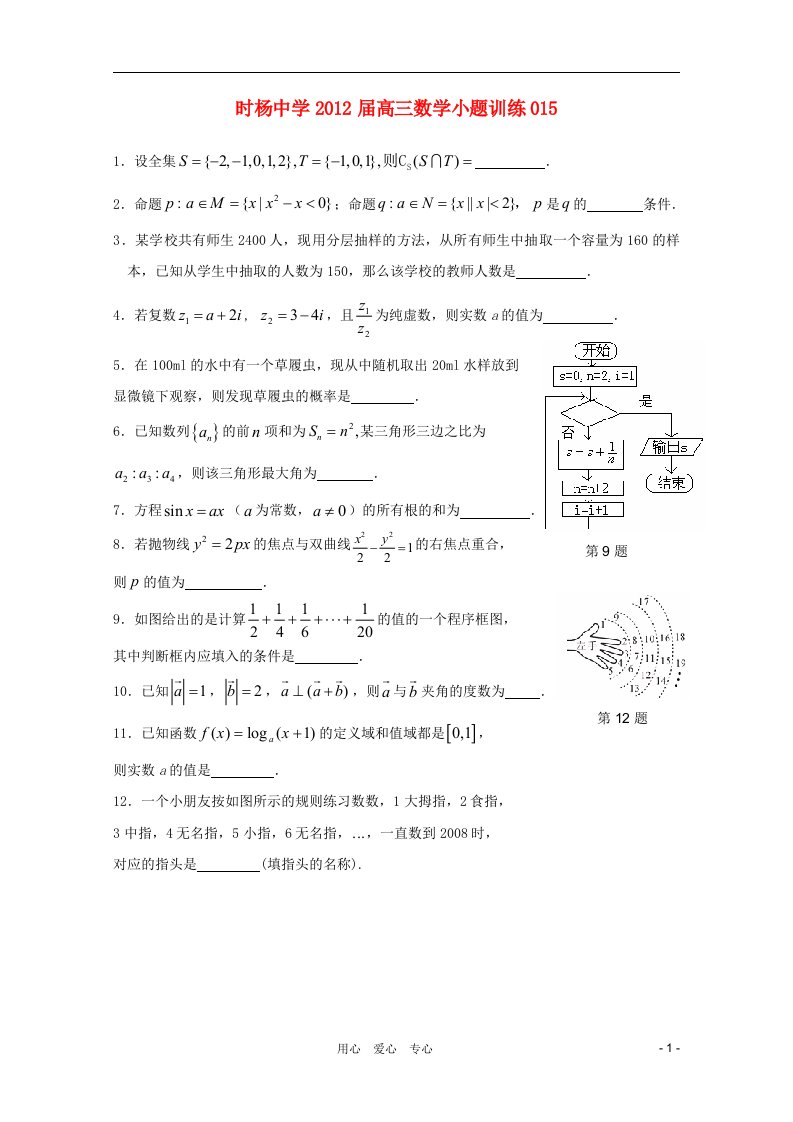 时杨中学 2012 届高三数学小题训练 015
1．设全集 S={-2,-1,0,1,2},T={-1,0,1},则∁_S(S∩T)= ________ ．
2．命题 p:a∈M={x|x²-x<0}；命题 q:a∈N={x||x|<2}， p 是 q 的 ________ 条件．
3．某学校共有师生 2400 人，现用分层抽样的方法，从所有师生中抽取一个容量为 160 的样
本，已知从学生中抽取的人数为 150，那么该学校的教师人数是 ________ ．
4．若复数 z₁=a+2i, z₂=3-4i，且 z₁/z₂ 为纯虚数，则实数 a 的值为 ________ ．
5．在 100ml 的水中有一个草履虫，现从中随机取出 20ml 水样放到
显微镜下观察，则发现草履虫的概率是 ________ ．
6．已知数列{aₙ}的前 n 项和为 Sₙ=n²,某三角形三边之比为
a₂:a₃:a₄，则该三角形最大角为 ________ ．
7．方程 sin x=ax（a 为常数，a≠0）的所有根的和为 ________ ．
8．若抛物线 y²=2px 的焦点与双曲线 x²/2-y²/2=1 的右焦点重合，
则 p 的值为 ________ ．
9．如图给出的是计算 1/2+1/4+1/6+⋯+1/20 的值的一个程序框图，
其中判断框内应填入的条件是 ________ ．
10．已知|a⃗|=1，|b⃗|=2，a⃗⊥(a⃗+b⃗)，则 a⃗ 与 b⃗ 夹角的度数为 ____ ．
11．已知函数 f(x)=logₐ(x+1) 的定义域和值域都是[0,1]，
则实数 a 的值是 ________ ．
12．一个小朋友按如图所示的规则练习数数，1 大拇指，2 食指，
3 中指，4 无名指，5 小指，6 无名指，…，一直数到 2008 时，
对应的指头是 ________ (填指头的名称)．
开始
s=0, n=2, i=1
是
否
s=s+1/n
n=n+2
i=i+1
输出s
结束
第 9 题
左手
1 9 17
2 8 10 16 18
3 7 11 15 19
4 6 12 14
5 13
第 12 题
用心 爱心 专心
- 1 -